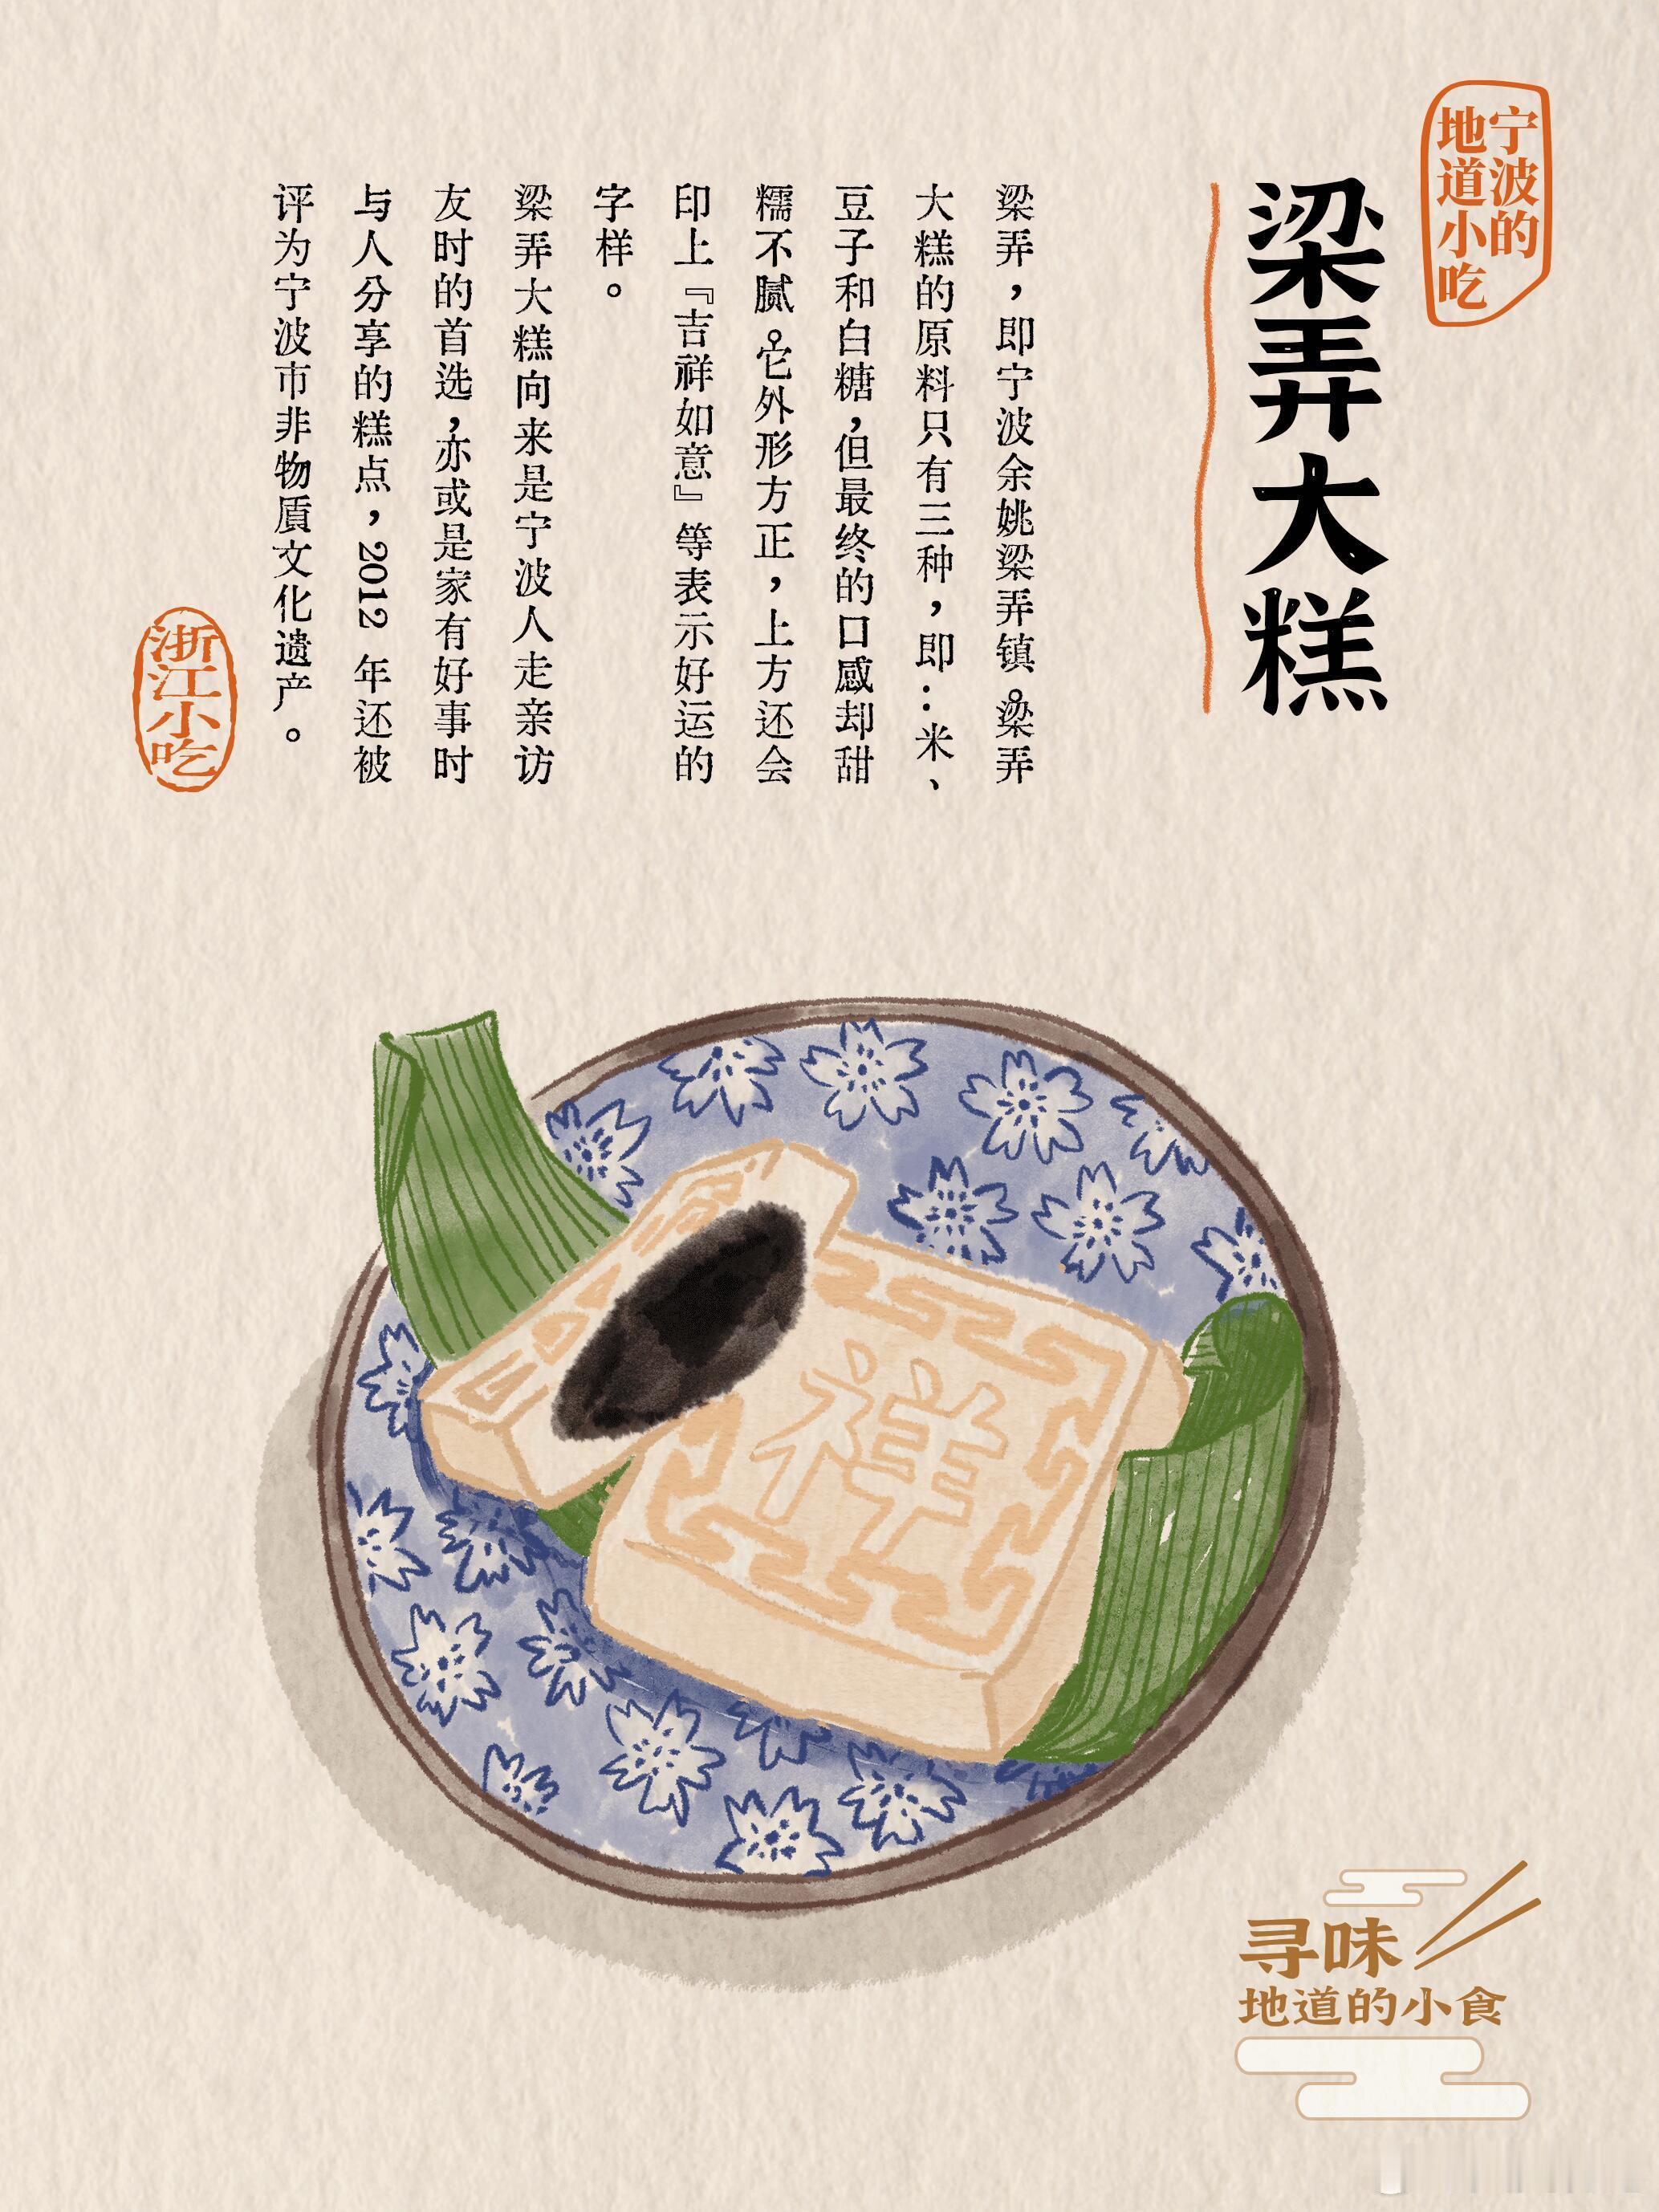 宁波的
地道小吃
梁弄大糕
梁弄，即宁波余姚梁弄镇。梁弄
大糕的原料只有三种，即：米、
豆子和白糖，但最终的口感却甜
糯不腻。它外形方正，上方还会
印上『吉祥如意』等表示好运的
字样。
梁弄大糕向来是宁波人走亲访
友时的首选，亦或是家有好事时
与人分享的糕点，2012 年还被
评为宁波市非物質文化遗产。
浙江小吃
祥
寻味
地道的小食